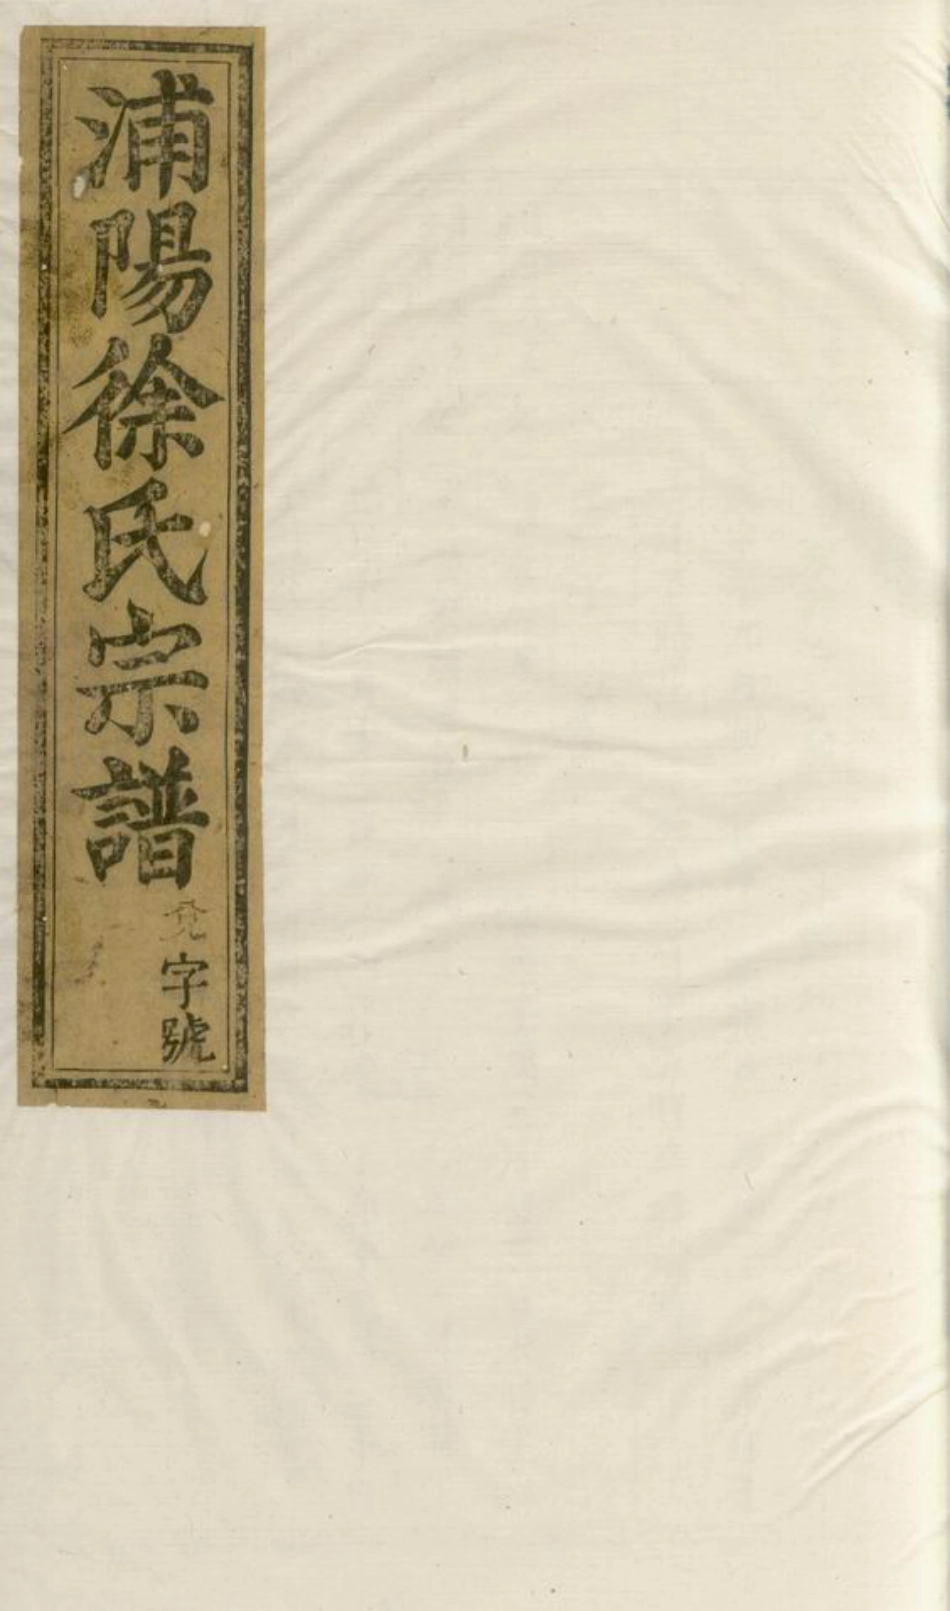 浦陽徐氏宗譜
字號